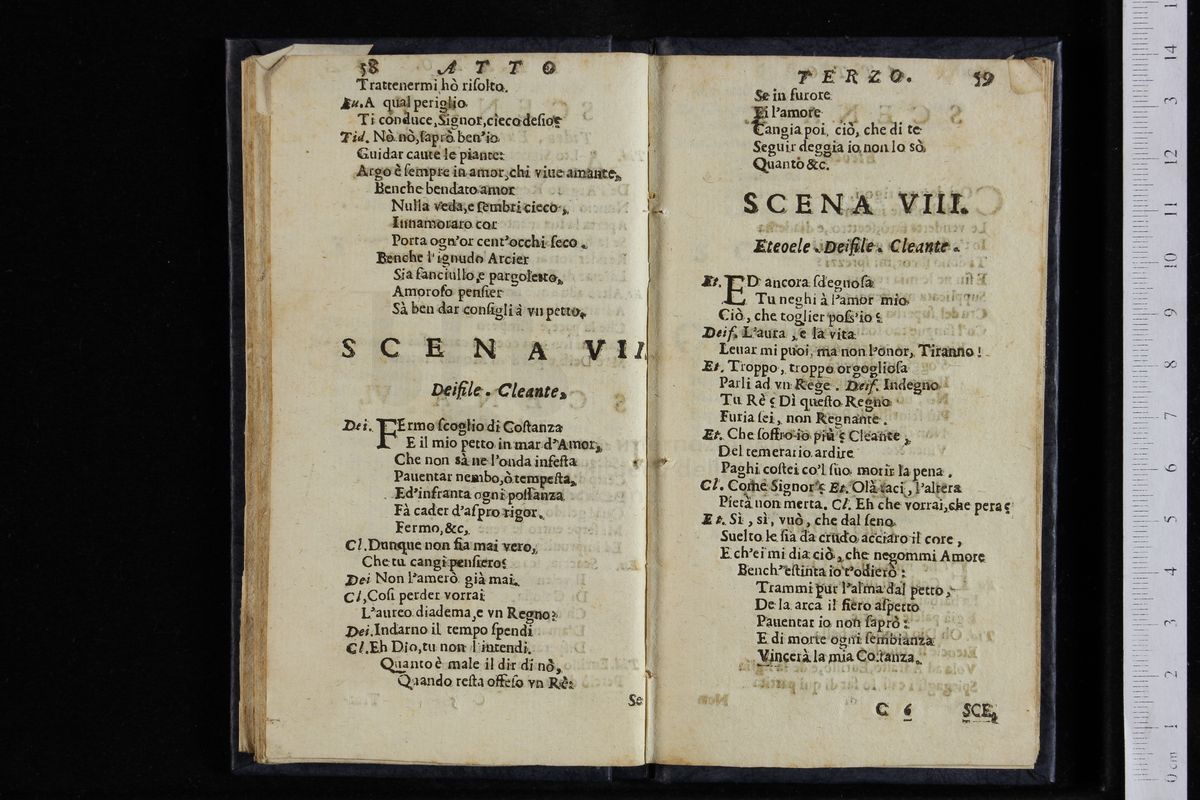 58 ATTO
Trattenermi hò risolto.
Eu. A qual periglio
Ti conduce, Signor, cieco desio?
Tid. Nò nò, saprò ben'io
Guidar caute le piante:
Argo è sempre in amor, chi viue amante,
Benche bendato amor
Nulla veda, e sembri cieco,
Innamoraro cor
Porta ogn'or cent'occhi seco.
Benche l'ignudo Arcier
Sia fanciullo, e pargoletto,
Amoroso pensier
Sà ben dar consigli à vn petto.
SCENA VII
Deifile. Cleante,
Dei. FErmo scoglio di Costanza
E il mio petto in mar d'Amor,
Che non sà ne l'onda infesta
Pauentar nembo, ò tempesta,
Ed'infranta ogni possanza
Fà cader d'aspro rigor.
Fermo, &c,
Cl. Dunque non fia mai vero,
Che tu cangi pensiero?
Dei Non l'amerò già mai.
Cl, Così perder vorrai
L'aureo diadema, e vn Regno?
Dei. Indarno il tempo spendi
Cl. Eh Dio, tu non l'intendi.
Quanto è male il dir di nò,
Quando resta offeso vn Rè:
Se
TERZO. 59
Se in furore
Ei l'amore
Cangia poi, ciò, che di te
Seguir deggia io non lo sò,
Quanto &c.
SCENA VIII.
Eteocle. Deifile. Cleante.
Et. ED ancora sdegnosa
Tu neghi à l'amor mio
Ciò, che toglier poss'io?
Deif. L'aura, e la vita
Leuar mi puoi, ma non l'onor, Tiranno!
Et. Troppo, troppo orgogliosa
Parli ad vn Rege. Deif. Indegno
Tu Rè? Dì questo Regno
Furia sei, non Regnante.
Et. Che soffro io più? Cleante,
Del temerario ardire
Paghi costei co'l suo morir la pena.
Cl. Come Signor? Et. Olà taci, l'altera
Pietà non merta. Cl. Eh che vorrai, che pera?
Et. Sì, sì, vuò, che dal seno
Suelto le sia da crudo acciaro il core,
E ch'ei mi dia ciò, che negommi Amore
Bench'estinta io t'odierò:
Trammi pur l'alma dal petto,
De la arca il fiero aspetto
Pauentar io non saprò:
E di morte ogni sembianza
Vincerà la mia Costanza.
C 6 SCE,